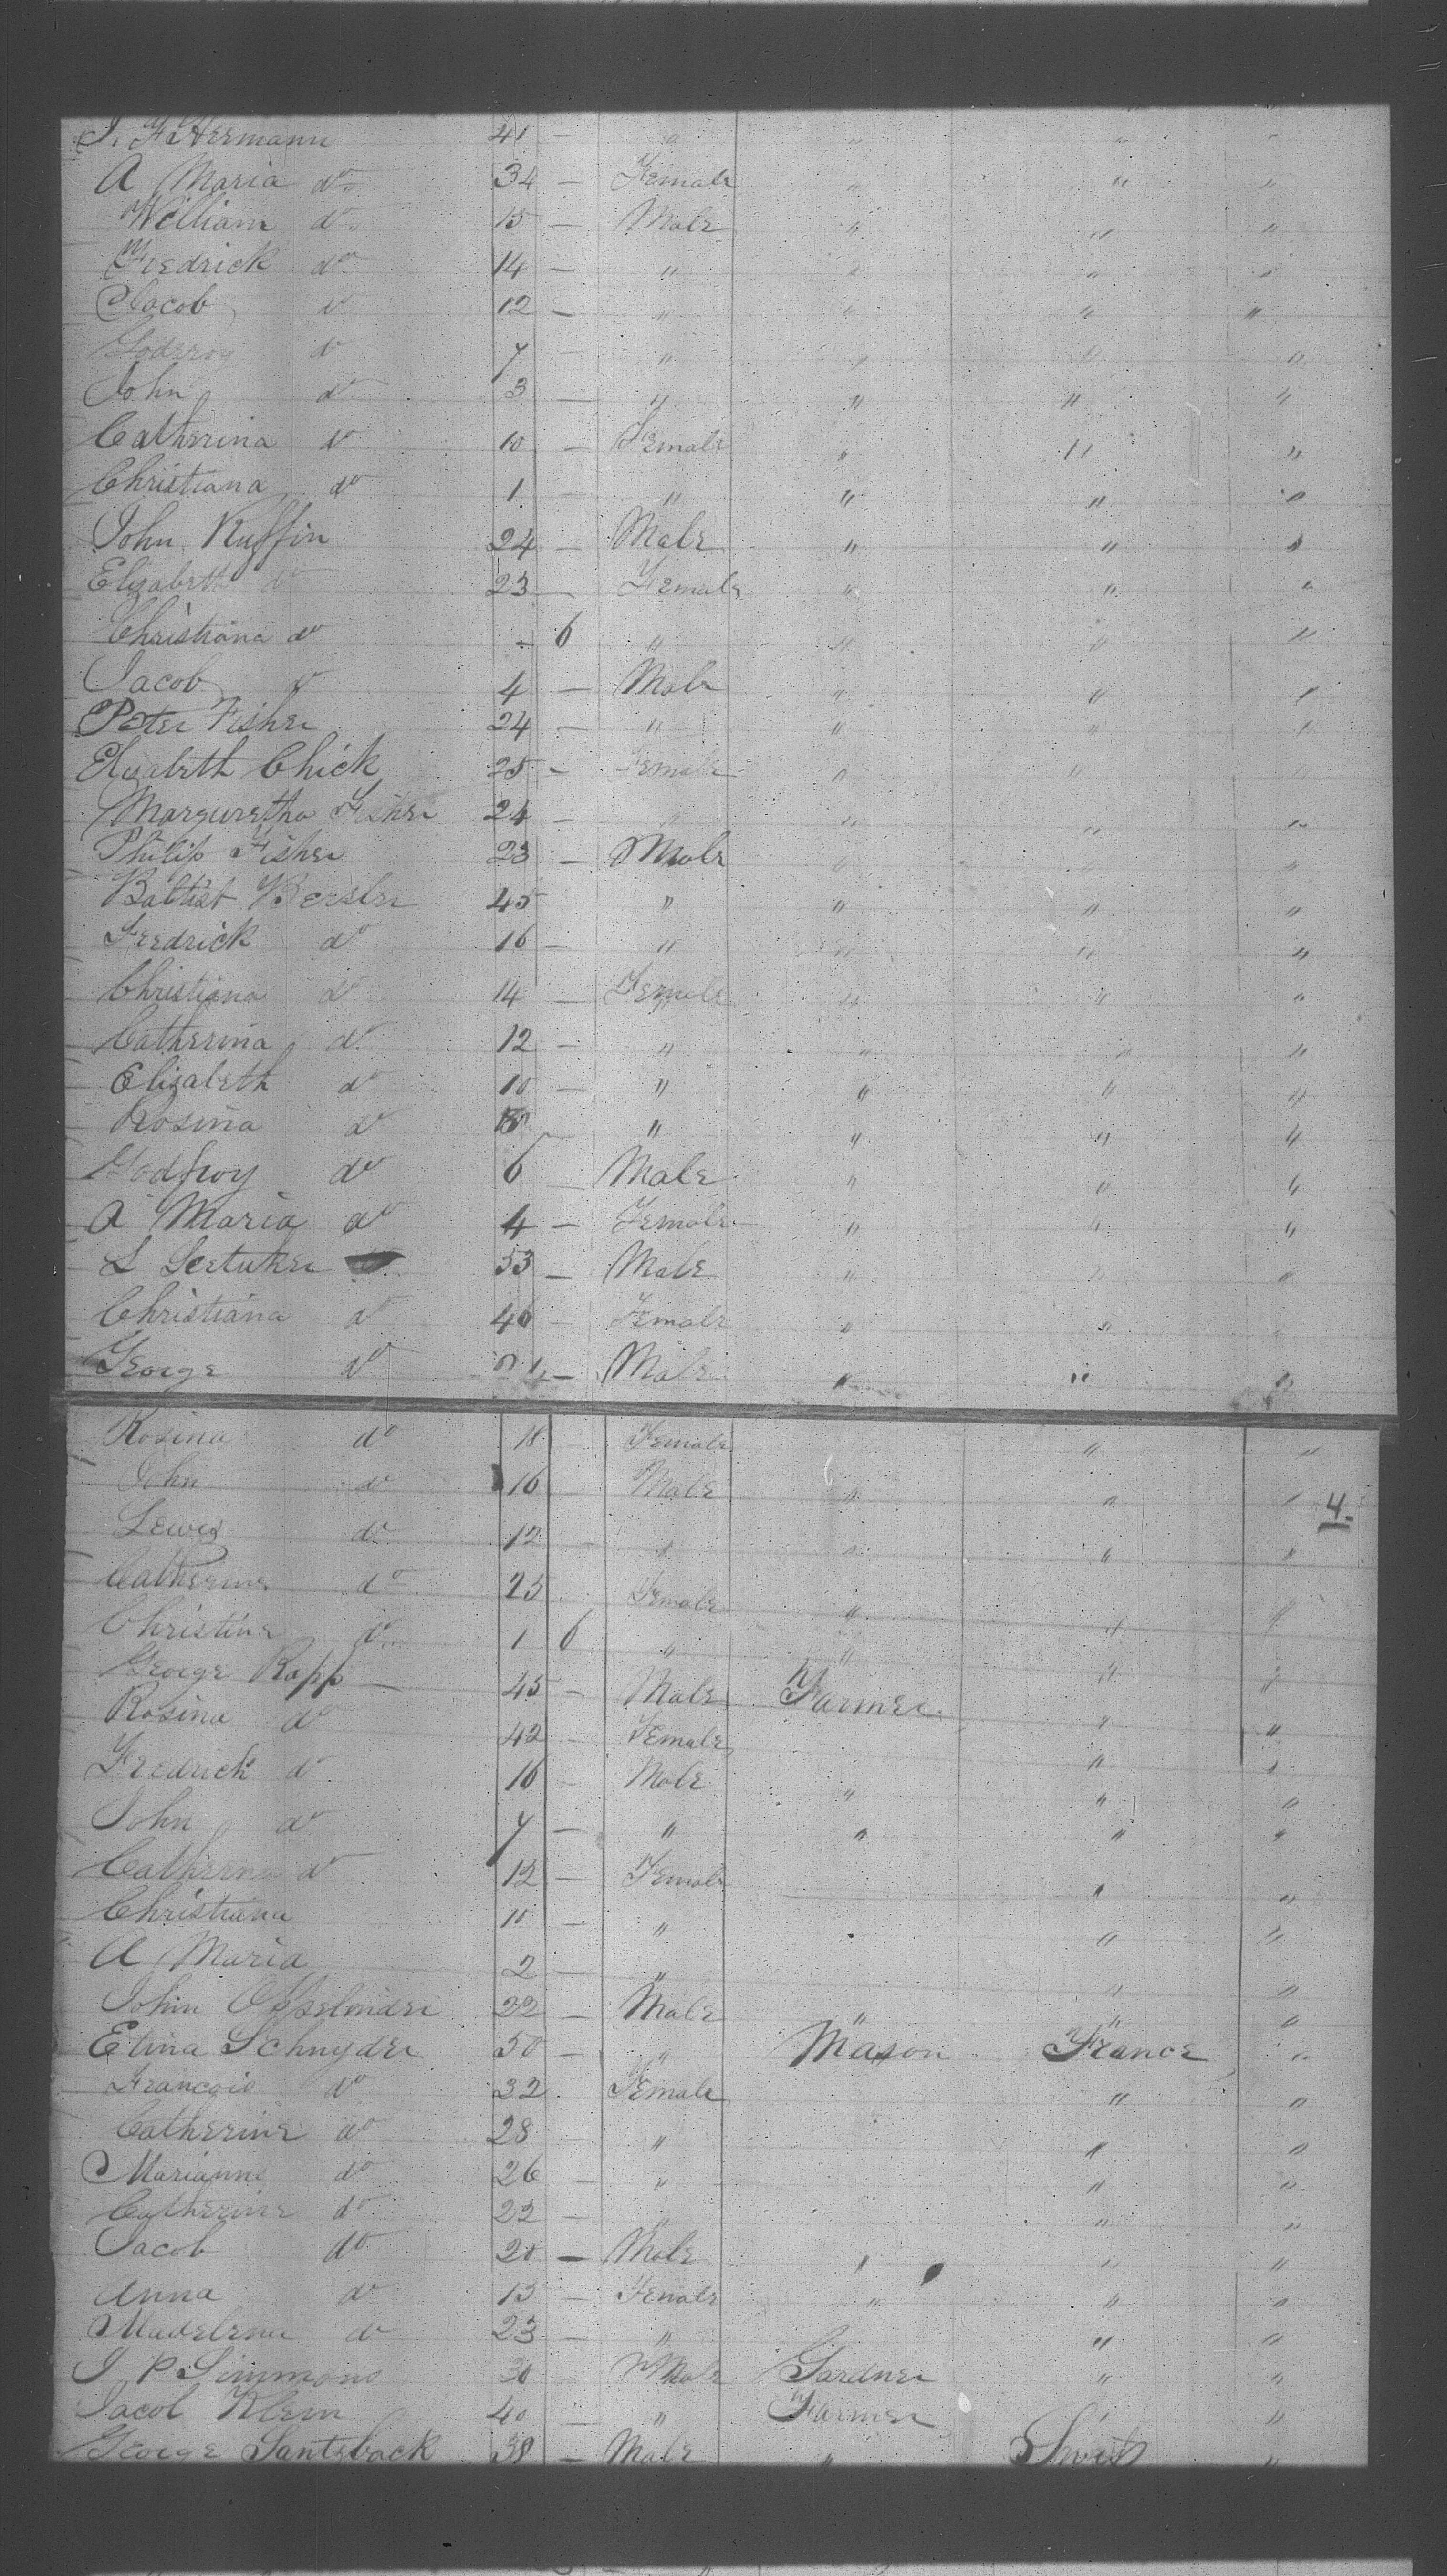 J. F. Hermann 41 — " " " "
A Maria do 34 — Female " " "
William do 15 — Male " " "
Fredrick do 14 — " " " "
Jacob do 12 — " " " "
Godfroy do 7 — " " " "
John do 3 — " " " "
Catherina do 10 — Female " " "
Christiana do 1 — " " " "
John Ruffin 24 — Male " " "
Elizabeth do 23 — Female " " "
Christiana do - 6 " " " "
Jacob do 4 — Male " " "
Peter Fisher 24 — " " " "
Elizabeth Chick 25 — Female " " "
Marguretha Fisher 24 — " " " "
Philip Fisher 23 — Male " " "
Battist 45 " " " "
Fredrick do 16 — " " " "
Christiana do 14 — Female " " "
Catherina do 12 — " " " "
Elizabeth do 10 — " " " "
Rosina do — " " " "
Godfroy do 6 — Male " " "
A Maria do 4 — Female " " "
L 53 — Male " " "
Christiana do 46 — Female " "
George do — Male " " "
Rosina do 18 Female " "
John do 16 Male " " "
4.
Lewis do 12 " " " "
Catherine do 25 Female " " "
Christine do 1 6 " " " "
George Rapp 45 — Male Farmer " "
Rosina do 42 — Female " "
Fredrick do 16 — Male " " "
John do 7 — " " " "
Catherina do 12 — Female " "
Christiana 10 — " " "
A Maria 2 — " " "
John 22 — Male " " "
Etina Schnyder 50 — " Mason France "
Francois do 32 Female " "
Catherine do 28 — " " "
Marianne do 26 — " " "
Catherine do 22 — " " "
Jacob do 20 — Male " " "
Anna do 13 — Female " " "
Madelena do 23 — " " "
J P Simmons 30 Male Gardner " "
Jacob Klein 40 — " Farmer " "
George Santsback 38 — Male " Swiss "